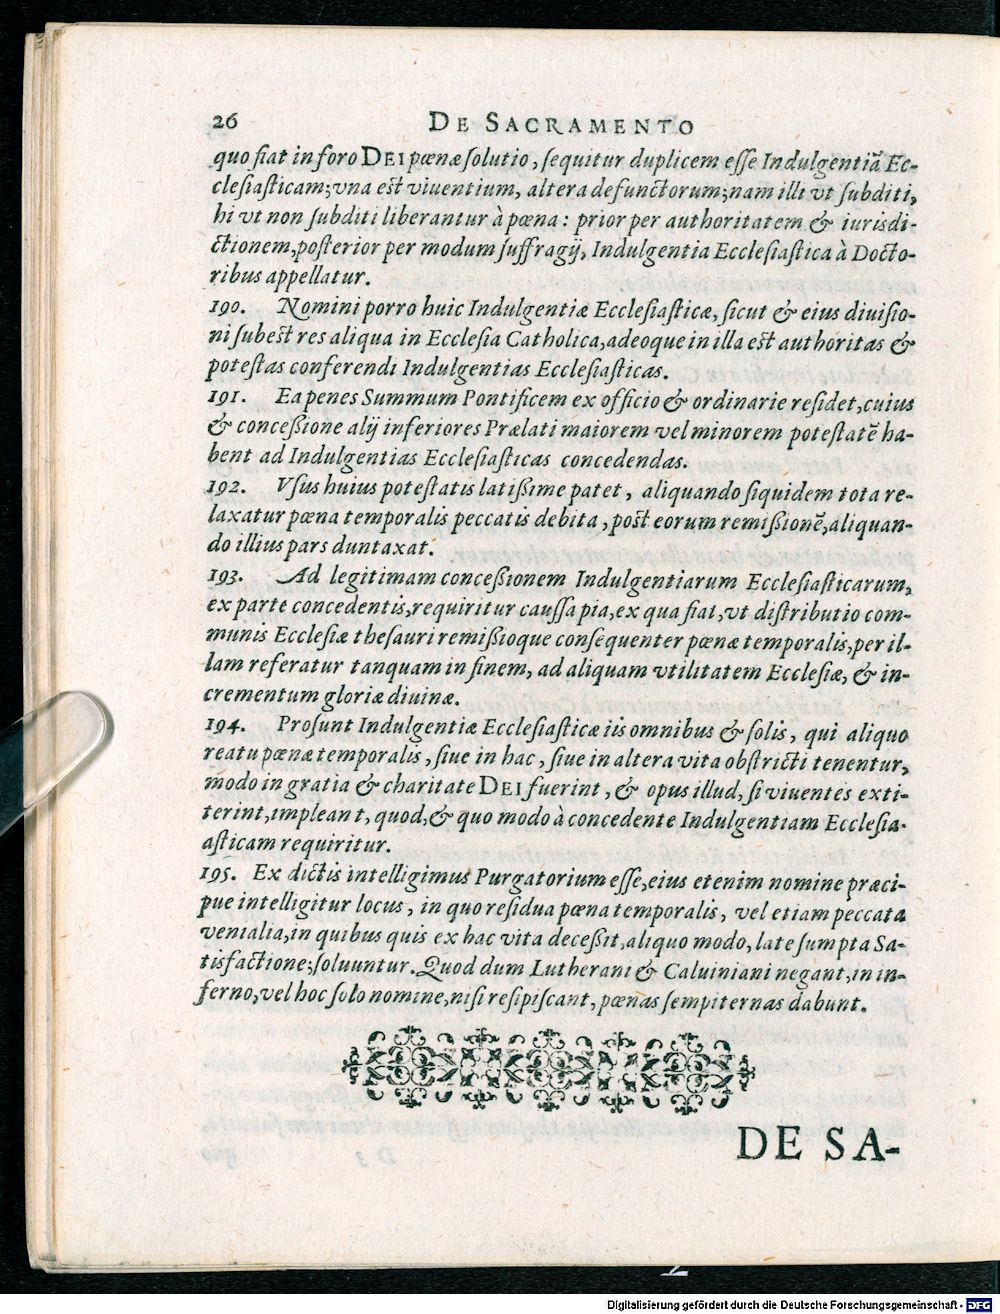 26 DE SACRAMENTO
quo fiat in foro DEI pœnæ solutio, sequitur duplicem esse Indulgentiã Ec-
clesiasticam; vna est viuentium, altera defunctorum; nam illi vt subditi,
hi vt non subditi liberantur à pœna: prior per authoritatem & iurisdi-
ctionem, posterior per modum suffragij, Indulgentia Ecclesiastica à Docto-
ribus appellatur.
190. Nomini porro huic Indulgentiæ Ecclesiasticæ, sicut & eius diuisio-
ni subest res aliqua in Ecclesia Catholica, adeoque in illa est authoritas &
potestas conferendi Indulgentias Ecclesiasticas.
191. Ea penes Summum Pontificem ex officio & ordinarie residet, cuius
& concessione alij inferiores Prælati maiorem vel minorem potestatẽ ha-
bent ad Indulgentias Ecclesiasticas concedendas.
192. Vsus huius potestatis latissime patet, aliquando siquidem tota re-
laxatur pœna temporalis peccatis debita, post eorum remissionẽ, aliquan-
do illius pars duntaxat.
193. Ad legitimam concessionem Indulgentiarum Ecclesiasticarum,
ex parte concedentis, requiritur caussa pia, ex qua fiat, vt distributio com-
munis Ecclesiæ thesauri remissioque consequenter pœnæ temporalis, per il-
lam referatur tanquam in finem, ad aliquam vtilitatem Ecclesiæ, & in-
crementum gloriæ diuinæ.
194. Prosunt Indulgentiæ Ecclesiasticæ iis omnibus & solis, qui aliquo
reatu pœnæ temporalis, siue in hac, siue in altera vita obstricti tenentur,
modo in gratia & charitate DEI fuerint, & opus illud, si viuentes exti-
terint, impleant, quod, & quo modo à concedente Indulgentiam Ecclesia-
asticam requiritur.
195. Ex dictis intelligimus Purgatorium esse, eius etenim nomine præci-
pue intelligitur locus, in quo residua pœna temporalis, vel etiam peccata
venialia, in quibus quis ex hac vita decessit, aliquo modo, late sumpta Sa-
tisfactione, soluuntur. Quod dum Lutherani & Caluiniani negant, in in-
ferno, vel hoc solo nomine, nisi resipiscant, pœnas sempiternas dabunt.
DE SA-
Digitalisierung gefördert durch die Deutsche Forschungsgemeinschaft - DFG